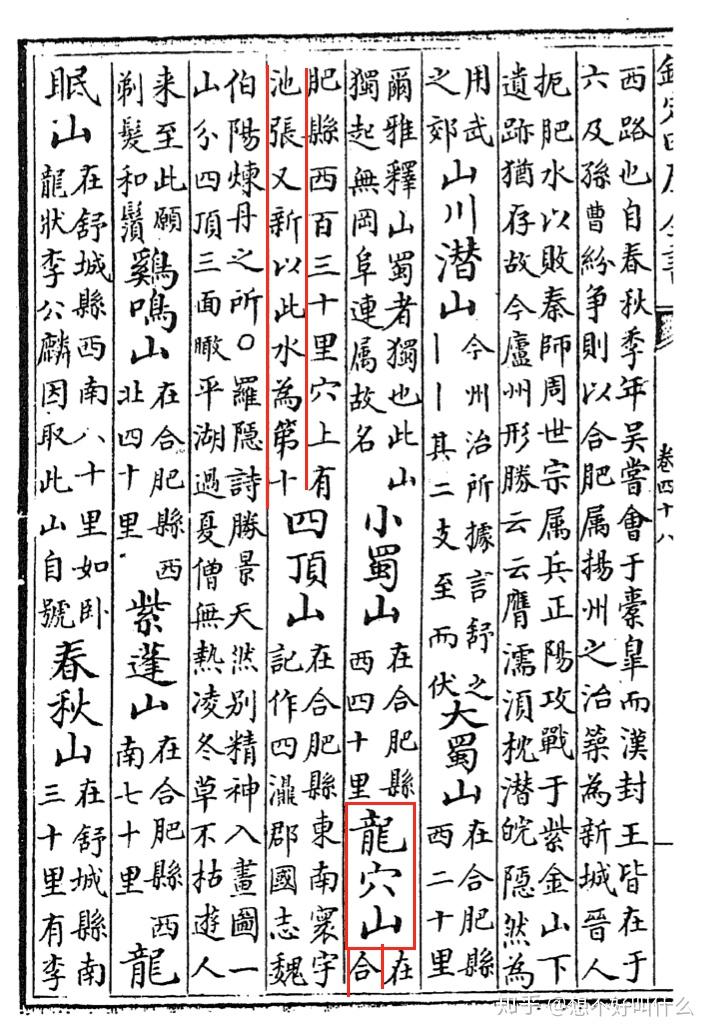 欽定四庫全書
卷四十八
西路也自春秋季年吳嘗會于橐臯而漢封王皆在于
六及孫曹紛争則以合肥属揚州之治築為新城晉人
扼肥水以敗秦師周世宗属兵正陽攻戰于紫金山下
遺跡猶存故今廬州形勝云云膺濡湏枕潜皖隠然為
用武
之郊
山川潜山
今州治所據言舒之
丨丨其二支至而伏
大蜀山
在合肥縣
西二十里
爾雅釋山蜀者獨也此山
獨起無岡阜連属故名
小蜀山
在合肥縣
西四十里
龍穴山
在
合
肥縣西百三十里穴上有
池張又新以此水為第十
四頂山
在合肥縣東南寰宇
記作四郡國志魏
伯陽煉丹之所○羅隠詩勝景天然别精神入畫圖一
山分四頂三面瞰平湖過夏僧無熱凌冬草不枯遊人
来至此願
剃髮和鬚
鷄鳴山
在合肥縣西
北四十里
紫蓬山
在合肥縣西
南七十里
龍
眠山
在舒城縣西南八十里如卧
龍狀李公麟因取此山自號
春秋山
在舒城縣南
三十里有李
知乎 @想不好叫什么